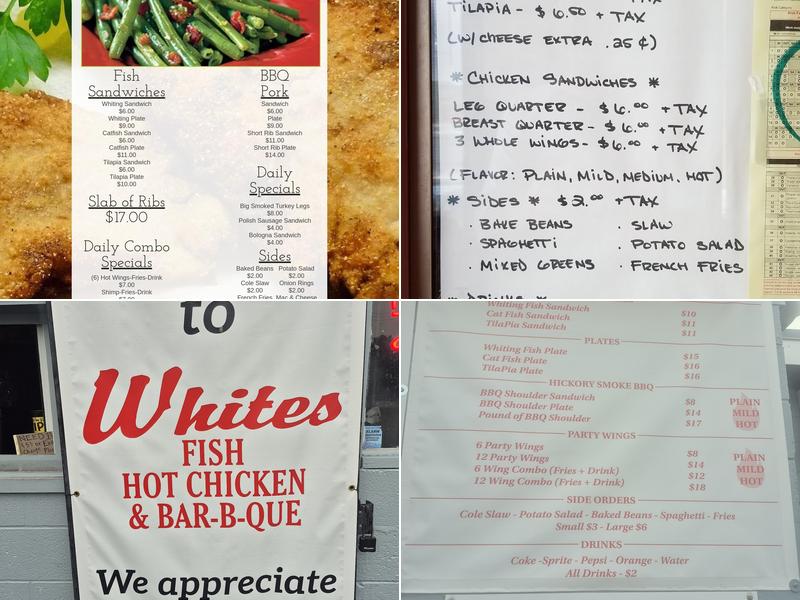 Fish
Sandwiches
Whiting Sandwich
$6.00
Whiting Plate
$9.00
Catfish Sandwich
$6.00
Catfish Plate
$11.00
Tilapia Sandwich
$6.00
Tilapia Plate
$10.00
Slab of Ribs
$17.00
Daily Combo
Specials
(6) Hot Wings-Fries-Drink
$7.00
Shimp-Fries-Drink
BBQ
Pork
Sandwich
$6.00
Plate
$9.00
Short Rib Sandwich
$11.00
Short Rib Plate
$14.00
Daily
Specials
Big Smoked Turkey Legs
$8.00
Polish Sausage Sandwich
$4.00
Bologna Sandwich
$4.00
Sides
Baked Beans Potato Salad
$2.00 $2.00
Cole Slaw Onion Rings
$2.00 $2.00
French Fries Mac & Cheese
TILAPIA - $6.50 + TAX
(W/CHEESE EXTRA .25¢)
* CHICKEN SANDWICHES *
LEG QUARTER - $6.00 + TAX
BREAST QUARTER - $6.00 + TAX
3 WHOLE WINGS - $6.00 + TAX
(FLAVOR: PLAIN, MILD, MEDIUM, HOT)
* SIDES * $3.00 + TAX
· BAKE BEANS · SLAW
· SPAGHETTI · POTATO SALAD
· MIXED GREENS · FRENCH FRIES
* DRINKS *
to
Whites
FISH
HOT CHICKEN
& BAR-B-QUE
We appreciate
Whiting Fish Sandwich $10
Cat Fish Sandwich $11
TilaPia Sandwich $11
PLATES
Whiting Fish Plate $15
Cat Fish Plate $16
TilaPia Plate $16
HICKORY SMOKE BBQ
BBQ Shoulder Sandwich $8
BBQ Shoulder Plate $14
Pound of BBQ Shoulder $17
PLAIN
MILD
HOT
PARTY WINGS
6 Party Wings $8
12 Party Wings $14
6 Wing Combo (Fries + Drink) $12
12 Wing Combo (Fries + Drink) $18
PLAIN
MILD
HOT
SIDE ORDERS
Cole Slaw - Potato Salad - Baked Beans - Spaghetti - Fries
Small $3 - Large $6
DRINKS
Coke -Sprite - Pepsi - Orange - Water
All Drinks - $2